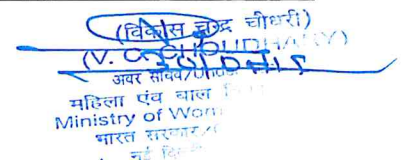 (विकास चन्द्र चौधरी)
(V. C. CHOUDHARY)
अवर सचिव/Under
महिला एंव बाल
Ministry of Wom
भारत सरकार/
नई दि